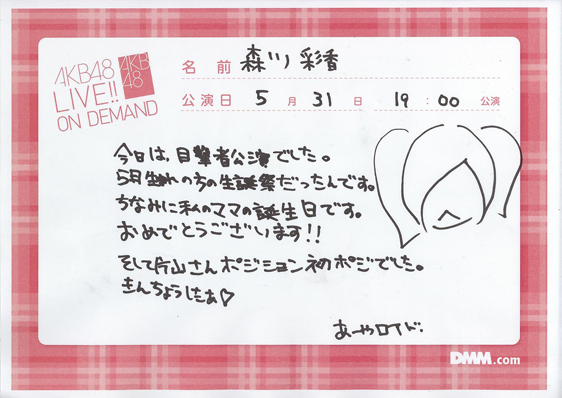 AKB48
LIVE!!
ON DEMAND
AKB
48
名前 森川 彩香
公演日 5月31日 19:00 公演
今日は、目撃者公演でした。
5月生まれの方の生誕祭だったんです。
ちなみに私のママの誕生日です。
おめでとうございます!!
そして片山さんポジション初ポジでした。
きんちょうしたぁ♡
あーやロイド.
DMM.com